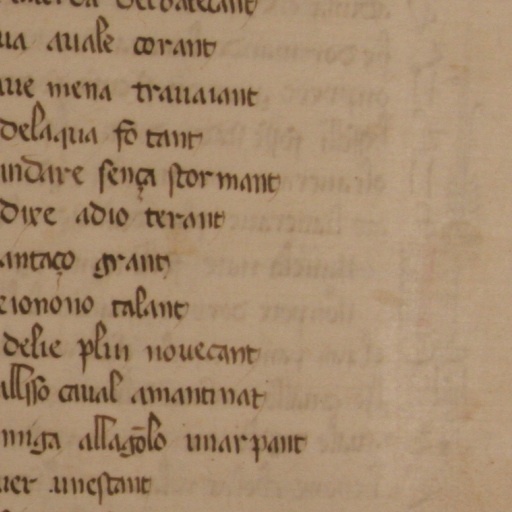 auale corant
mena trauaiant
delaqua fo tant
indare sença stormant
dire adio terant
antaço grant
eionono talant
delie plui nouecant
caual amantinat
niga allagolo inarpant
uer .unestant